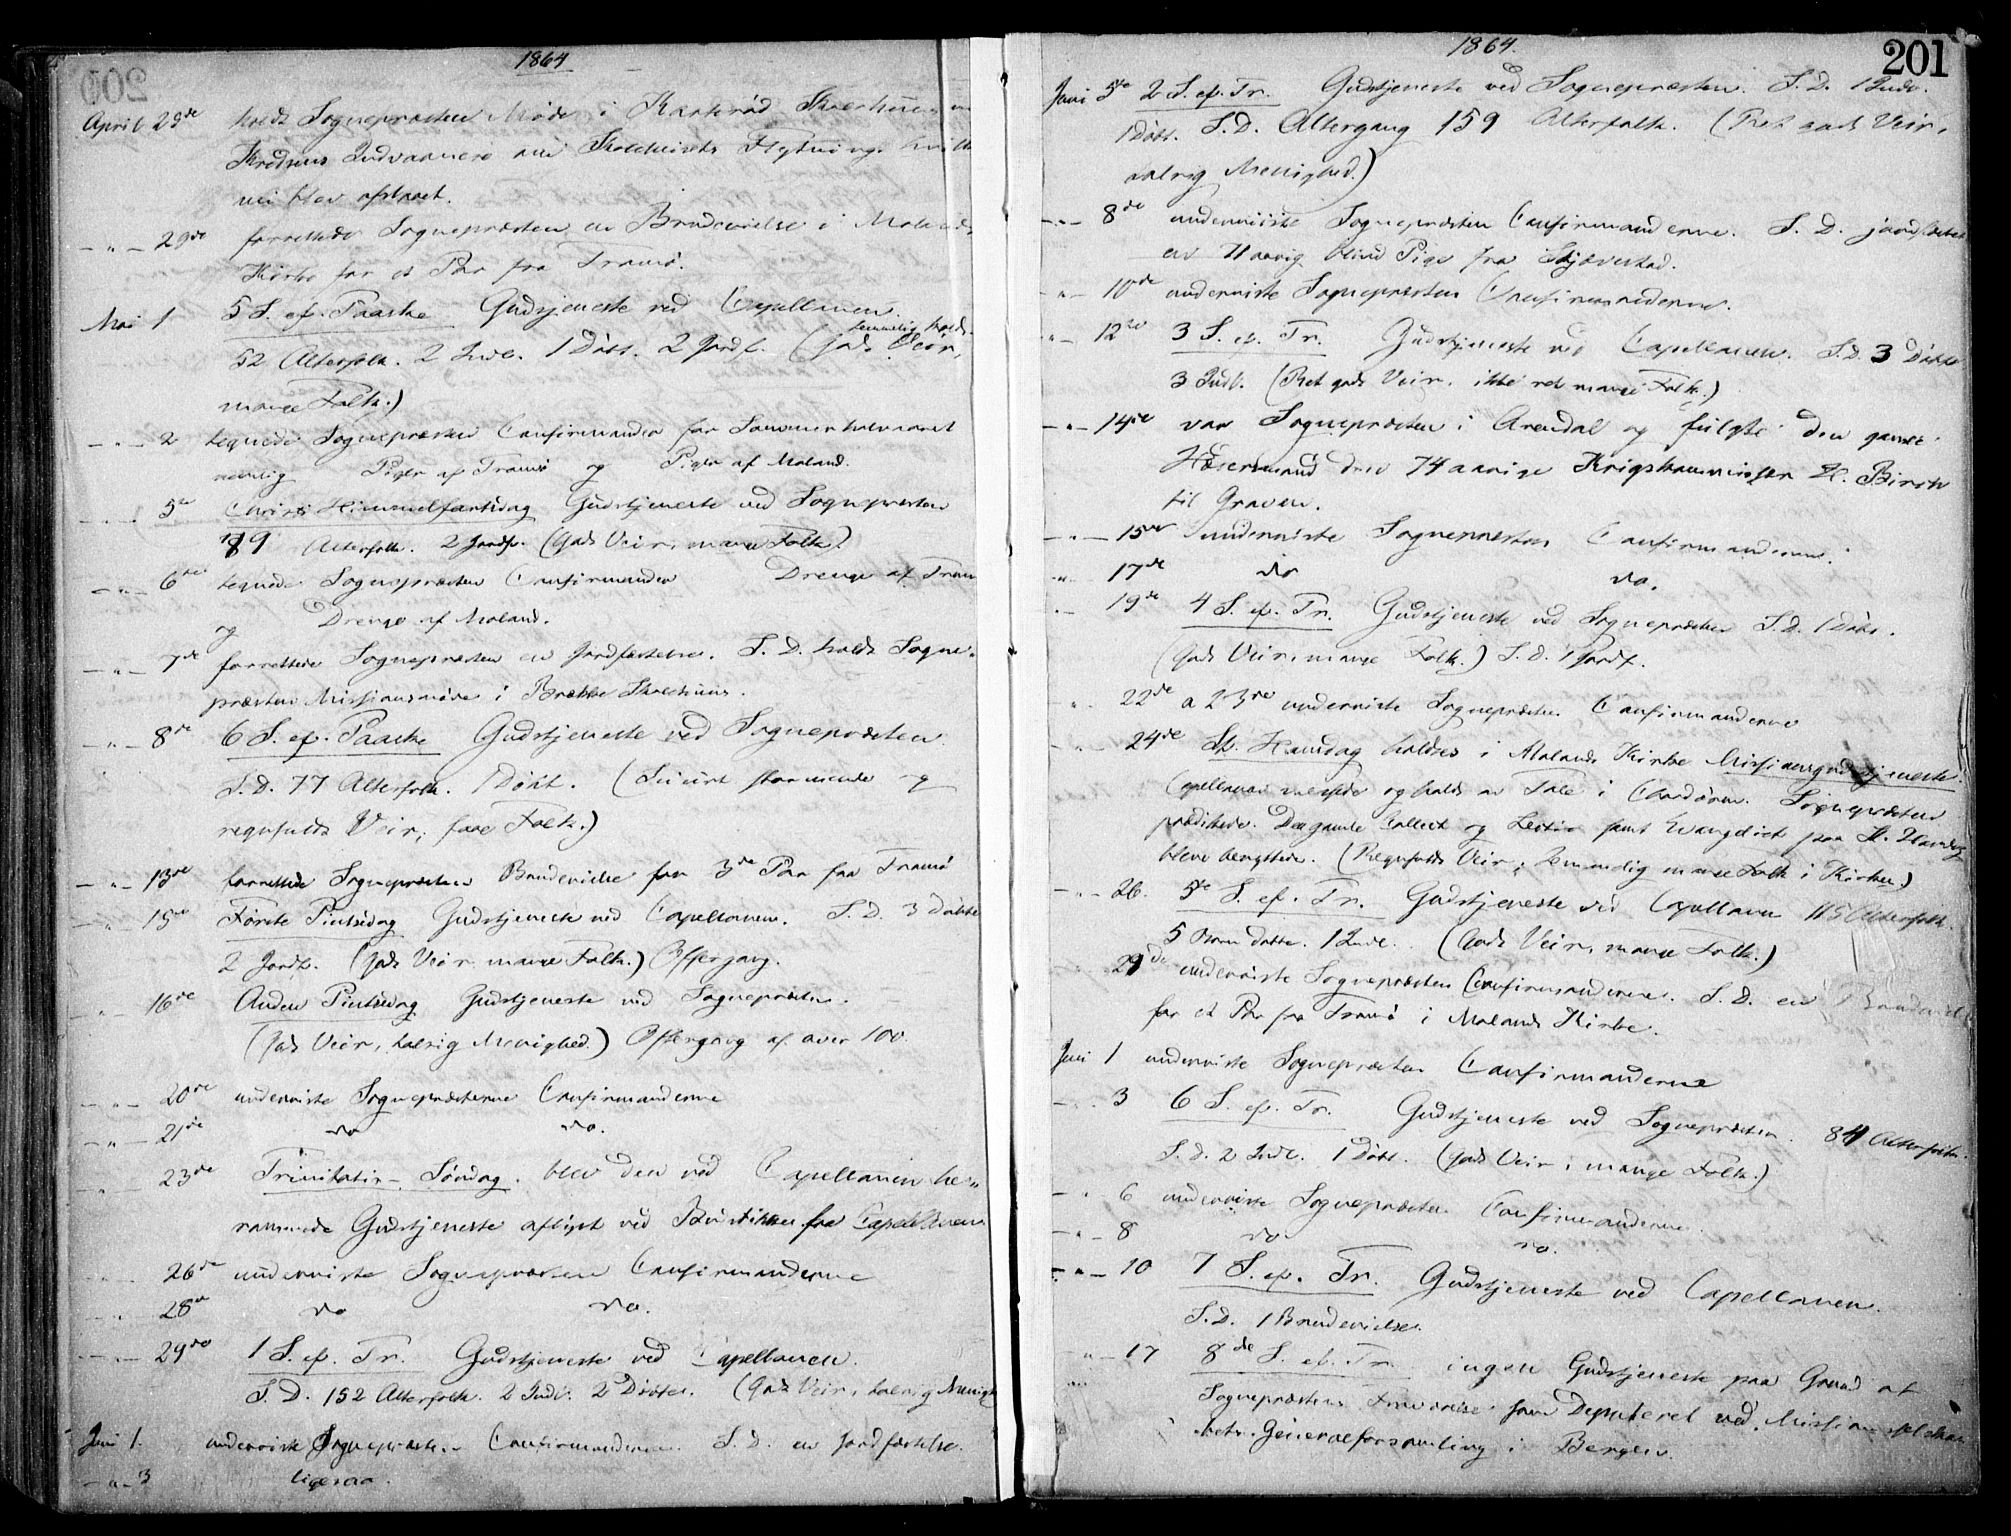 1864
April 29de holdt Sognepræsten Møde i Skolehuus
Kredsens Indvaanere om Skolehusets Flytning
nei blev afslaaet.
— " — 29de forrettede Sognepræsten en Brudevielse i Molands
Kirke for et Par fra Tromø.
Mai 1 5 S. ef. Paaske Gudstjeneste ved Capellanen.
52 Alterfolk. 2 Indl. 1 Døbt. 2 Jordf. (godt Veir,
temmelig koldt.
mange Folk.)
— " — 2 tegnede Sognepræsten Confirmander for Sommerhalvaaret
nemlig Piger af Tromø og Piger af Moland.
— " — 5te Christi Himmelfartsdag Gudstjeneste ved Sognepræsten
Alterfolk. 2 Jordf. (godt Veir, mange Folk)
— " — 6te tegnede Sognepræsten Confirmander Drenge af Trom
og Drenge af Moland.
— " — 7de forrettede Sognepræsten en Jordfæstelse. S. D. holdt Sogne-
præsten Missionsmøde i Brække Skolehuus.
— " — 8de 6 S. ef. Paaske Gudstjeneste ved Sognepræsten.
S. D. 77 Alterfolk. 1 Døbt. (stormende og
regnfuldt Veir, faae Folk.)
— " — 13de forrettede Sognepræsten Brudevielse for 3de Par fra Tromø
— " — 15de Første Pintsedag Gudstjeneste ved Capellanen. S. D. 3 Døbte
2 Jordf. (godt Veir mange Folk.) Offergang.
— " — 16de Anden Pintsedag Gudstjeneste ved Sognepræsten.
(godt Veir, talrig Menighed.) Offergang af over 100.
— " — 20de underviste Sognepræsten Confirmanderne
— " — 21de do do.
— " — 23de Trinitatis-Søndag. blev den ved Capellanen be-
rammede Gudstjeneste aflyst ved fra Capellanen
26de underviste Sognepræsten Confirmanderne
28de do do.
— " — 29de 1 S. ef. Tr. Gudstjeneste ved Capellanen.
S. D. 152 Alterfolk. 2 Indl. 2 Døbte. (godt Veir, talrig Menigh
Juni 1. underviste Sognepræsten Confirmanderne. S. D. en Jordfæstelse.
— " — 3 ligesaa.
1864.
201
Juni 5te 2 S. ef. Tr. Gudstjeneste ved Sognepræsten. S. D. 1 Indl.
1 Døbt. S. D. Altergang 159 Alterfolk. (Ret godt Veir,
talrig Menighed.)
— " — 8de underviste Sognepræsten Confirmanderne. S. D. jordfæstet
en 71 aarig blind Pige fra Skjæverstad.
" — 10de underviste Sognepræsten Confirmanderne.
" — 12te 3 S. ef. Tr. Gudstjeneste ved Capellanen. S. D. 3 Døbte
3 Indl. (Ret godt Veir, ikke ret mange Folk.)
— " — 14de var Sognepræsten i Arendal og fulgte den gamle
Hædersmand den 74 aarige Krigskommissær H. Birch
til Graven.
— " — 15de underviste Sognepræsten Confirmanderne.
" — 17de do do.
" — 19de 4 S. ef. Tr. Gudstjeneste ved Sognepræsten S. D. 1 Døbt.
(godt Veir, mange Folk.) S. d. 1 Jordf.
" 22de a 23de underviste Sognepræsten Confirmanderne
— " — 24de St. Hansdag holdtes i Molands Kirke Missionsgudstjeneste.
Capellanen messede og holdt en Tale i Chordøren. Sognepræsten
prædikede. Den gamle Collect og Lectie samt Evangeliet paa St. Hansdag
bleve benyttede. (Regnfuldt Veir, temmelig mange Folk i Kirken.)
— " — 26. 5te S. ef. Tr. Gudstjeneste ved Capellanen 115 Alterfolk.
5 Børn døbte. 1 Indl. (Godt Veir, mange Folk.)
29de underviste Sognepræsten Confirmanderne. S. D. en Brudeviel
for et Par fra Tromø i Molands Kirke.
Juni 1 underviste Sognepræsten Confirmanderne
— " — 3 6 S. ef. Tr. Gudstjeneste ved Sognepræsten. 84 Alterfolk.
S. d. 2 Indl. 1 Døbt. (godt Veir, mange Folk.)
— " 6 underviste Sognepræsten Confirmanderne.
— " — 8 do do.
— " — 10 7 S. ef. Tr. Gudstjeneste ved Capellanen.
S. D. 1 Brudevielse.
" — 17 8de S. ef. Tr. ingen Gudstjeneste paa Grund af
Sognepræstens Fraværelse som Deputeret ved Missionsselskab
bets Generalforsamling i Bergen.